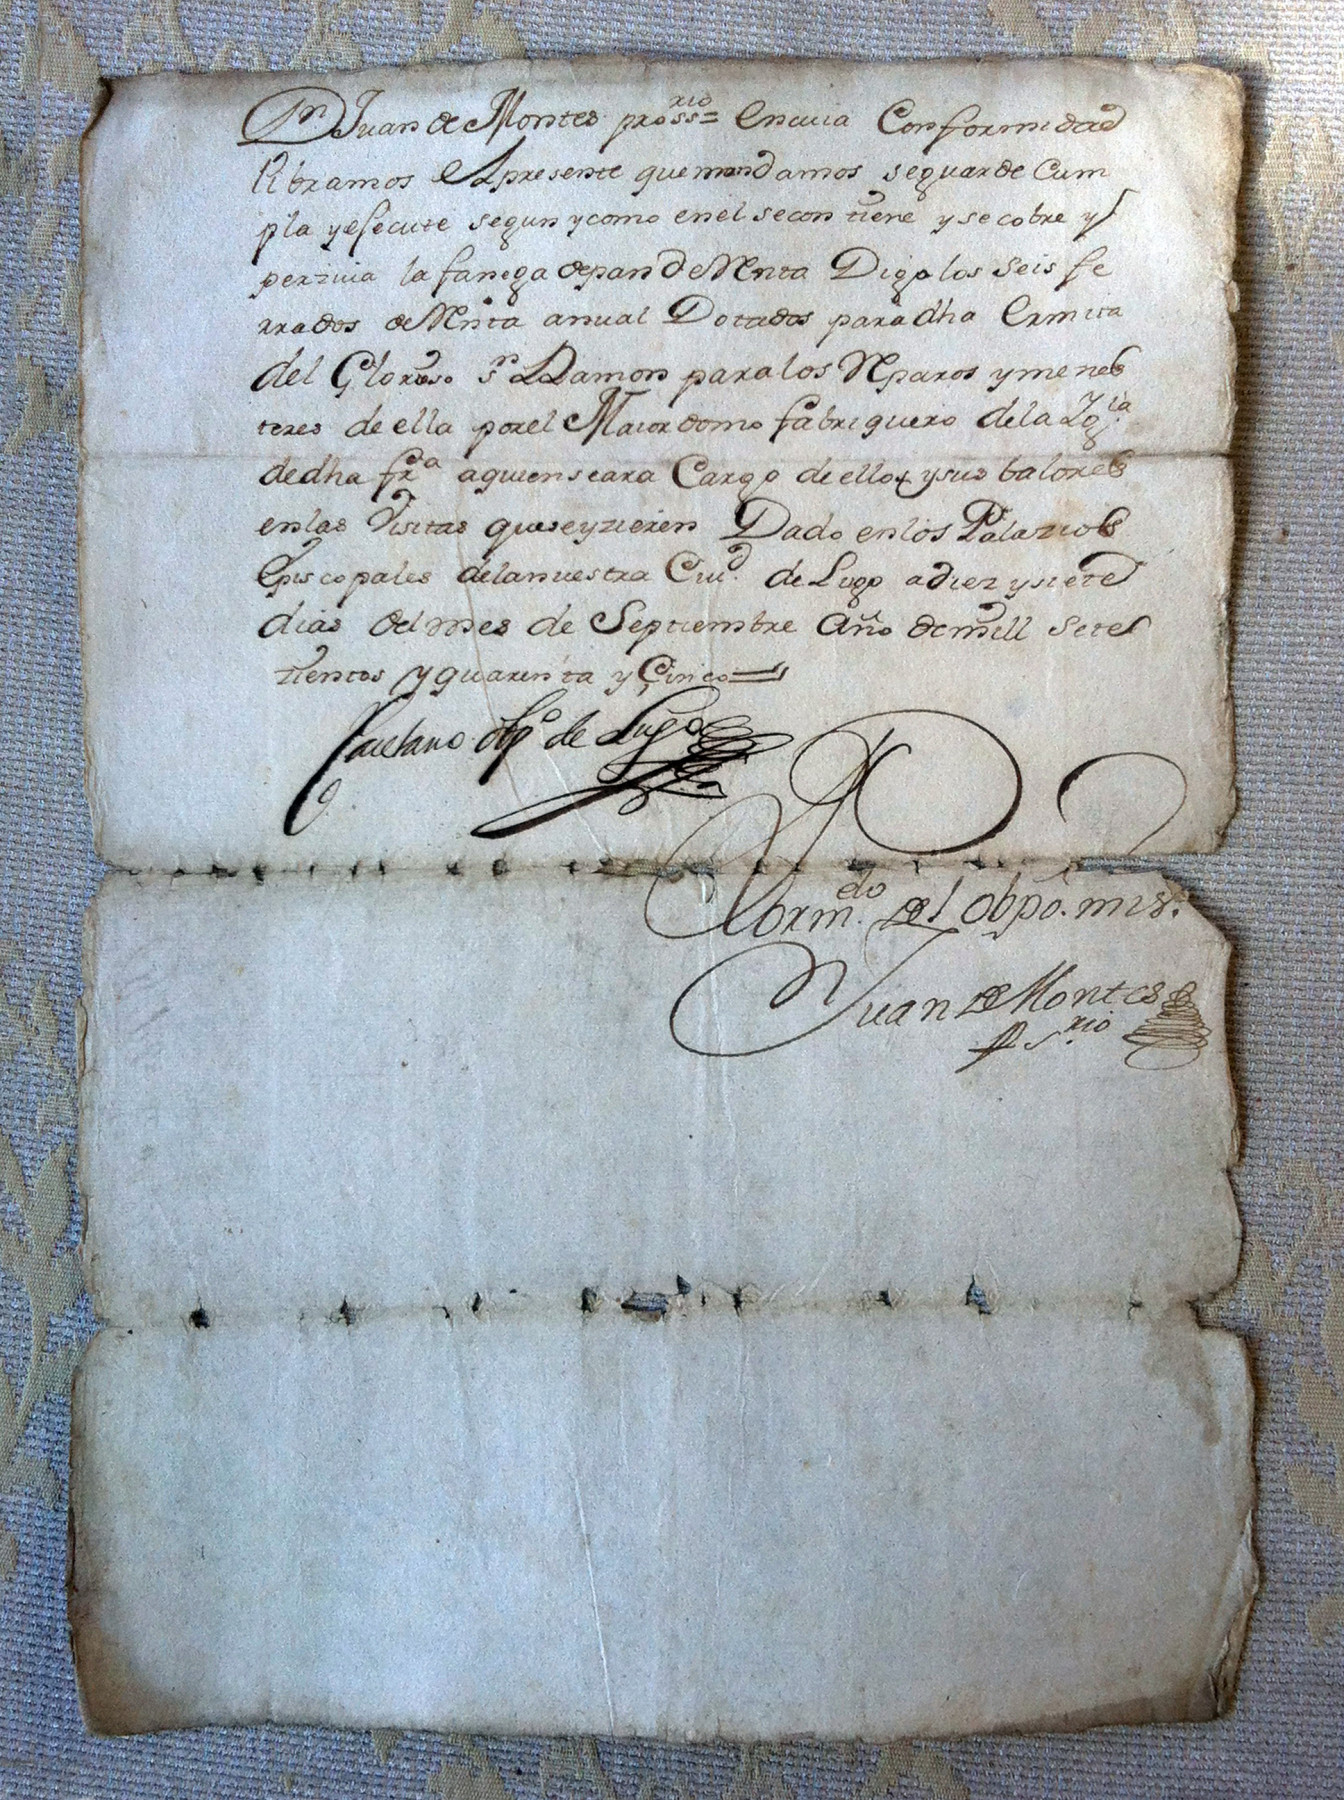 Dn Juan de Montes pross.rio = En cuia Conformidad
libramos el presente que mandamos se guarde Cum
pla y esecute segun y como en el se contiene y se cobre y
perziuia la fanega de pan de Renta Digo los seis fe
rrados de Renta anual Dotados para dha ermita
del Glorioso Sn Ramon para los Reparos y menes
teres de ella por el Maiordomo fabriquero de la Igla
de dha fra a quien se ara Cargo de ellos y sus balores
en las Visitas que se yzieren Dado en los Palazios
Episcopales de la nuestra Ciud. de Lugo a diez y siete
dias del mes de Septiembre Año de mill sete
zientos y quarenta y Çinco =
Caietano obpo de Lugo
Por mdo. del obpo. mi sr.
Juan de Montes
srio